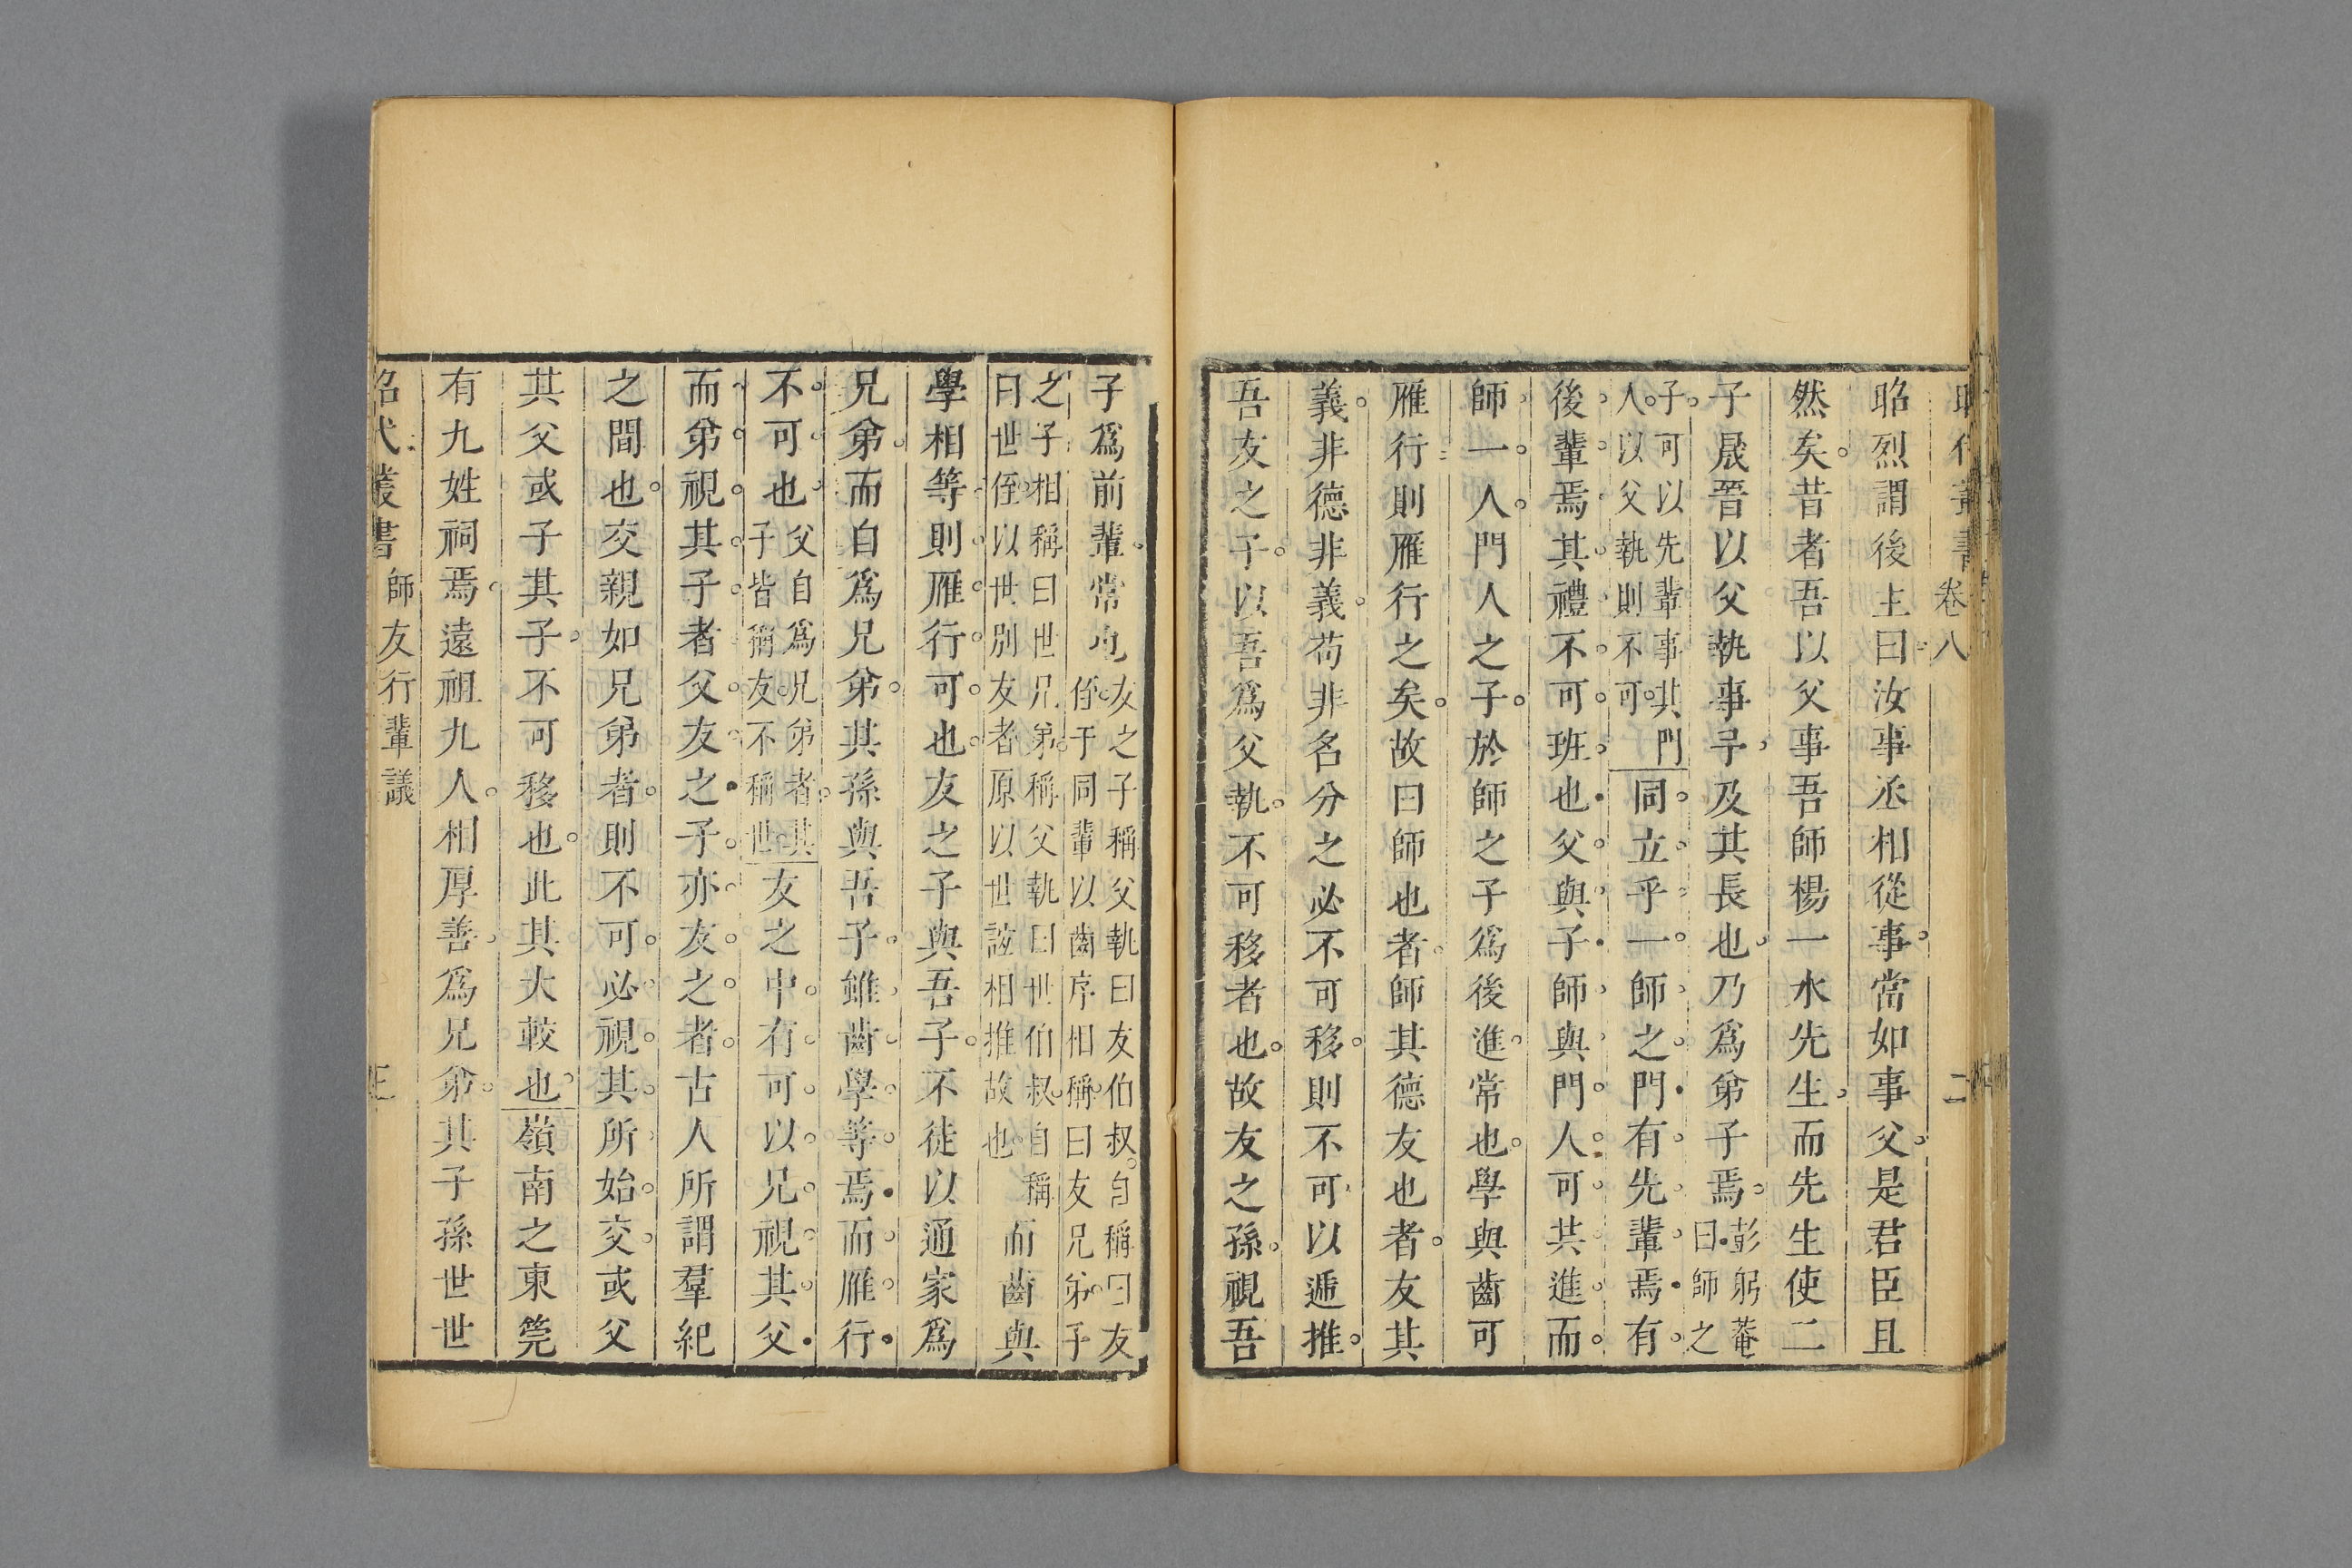 昭代叢書 卷八 二
昭烈謂後主曰汝事丞相從事當如事父是君臣且
然矣昔者吾以父事吾師楊一水先生而先生使二
子晟晉以父執事予及其長也乃爲弟子焉彭躬菴曰師之
子可以先輩事其門人以父執則不可同立乎一師之門有先輩焉有
後輩焉其禮不可班也父與子師與門人可共進而
師一人門人之子於師之子爲後進常也學與齒可
雁行則雁行之矣故曰師也者師其德友也者友其
義非德非義苟非名分之必不可移則不可以遞推
吾友之子以吾爲父執不可移者也故友之孫視吾
子爲前輩常也友之子稱父執曰友伯叔自稱曰友侄于同輩以齒序相稱曰友兄弟子
之子相稱曰世兄弟稱父執曰世伯叔自稱曰世侄以世別友者原以世誼相推故也而齒與
學相等則雁行可也友之子與吾子不徒以通家爲
兄弟而自爲兄弟其孫與吾子雖齒學等焉而雁行
不可也父自爲兄弟者其子皆稱友不稱世友之中有可以兄視其父
而弟視其子者父友之子亦友之者古人所謂羣紀
之間也交親如兄弟者則不可必視其所始交或父
其父或子其子不可移也此其大較也嶺南之東莞
有九姓祠焉遠祖九人相厚善爲兄弟其子孫世世
昭代叢書 師友行輩議 三